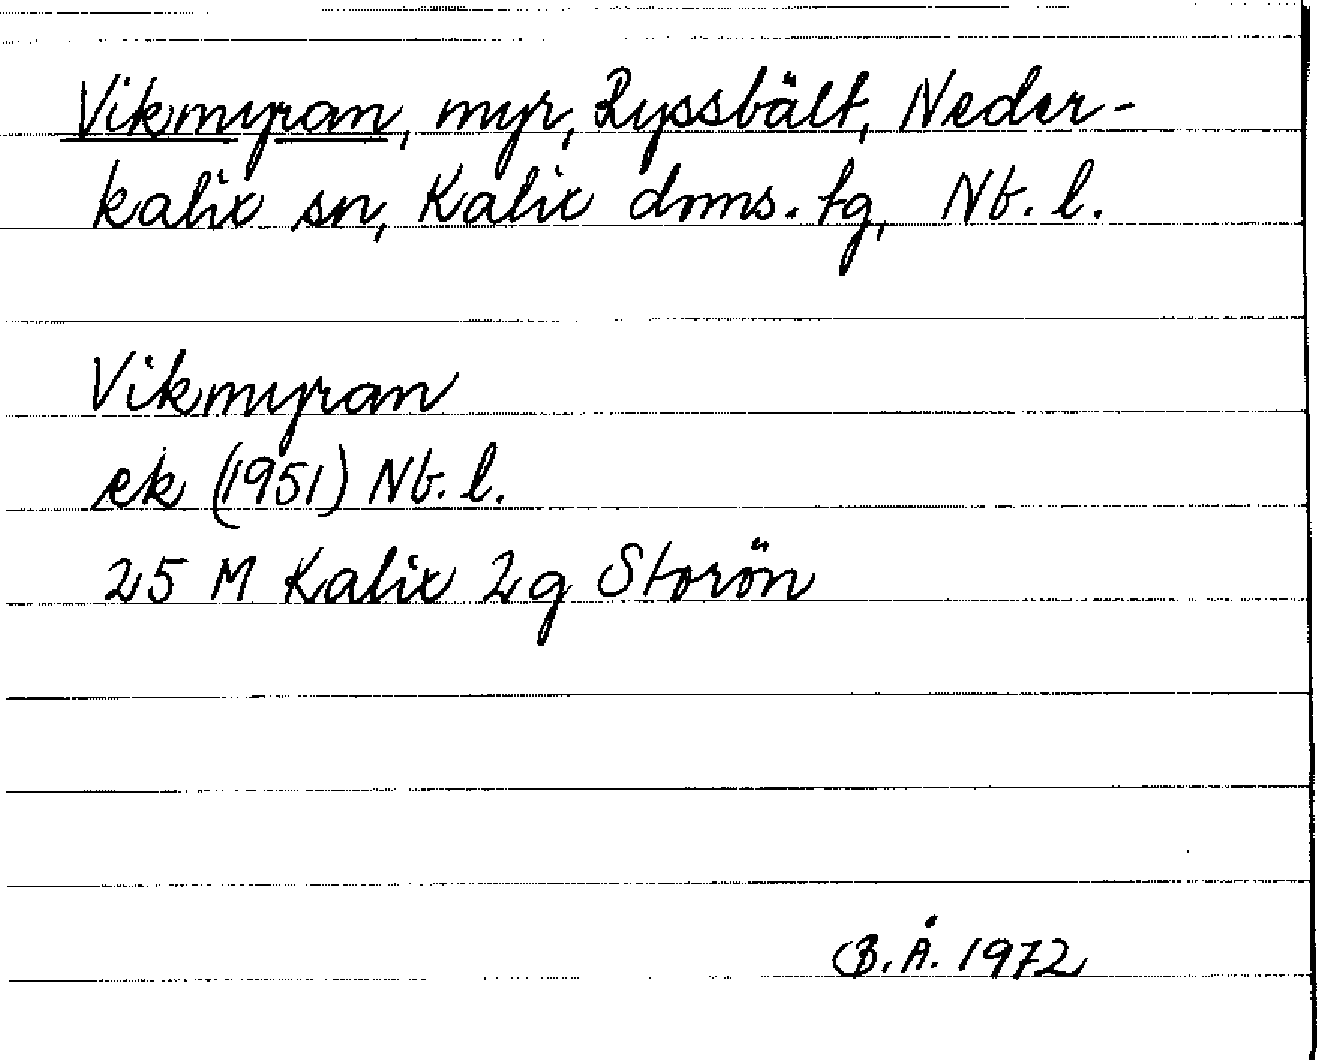 Vikmyran, myr, Ryssbält, Neder-
kalix sn, Kalix doms. tg, Nb. l.
Vikmyran
ek (1951) Nb. l.
25 M Kalix 2g Storön
B. Å. 1972